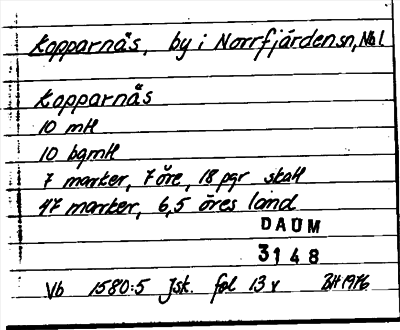 Kopparnäs, by i Norrfjärdensn, Nbl
Kopparnäs
10 mtl
10 bgmtl
7 marker, 7 öre, 18 pgr skatt
47 marker, 6,5 öres land
DAUM
3148
Vb 1580:5 Jsk. fol 13 v BH 1976